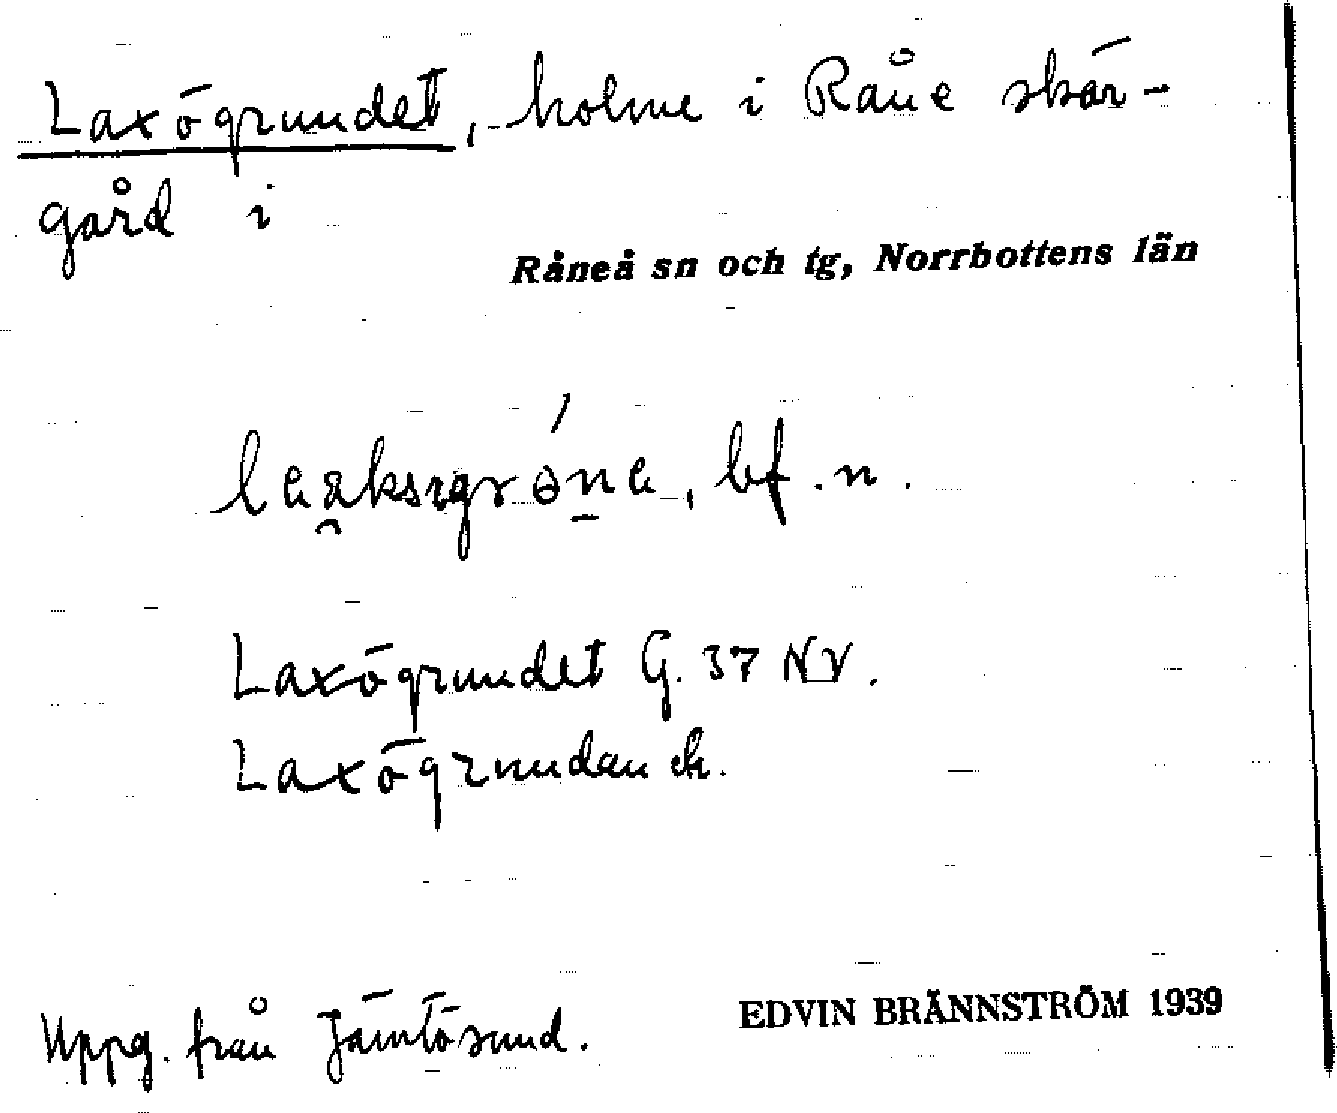 Laxögrundet, holme i Råne skär-
gård i
Råneå sn och tg, Norrbottens län
bf. n.
Laxögrundet G. 37 NV.
Laxögrundan ek.
Uppg. från Jämtösund.
EDVIN BRÄNNSTRÖM 1939